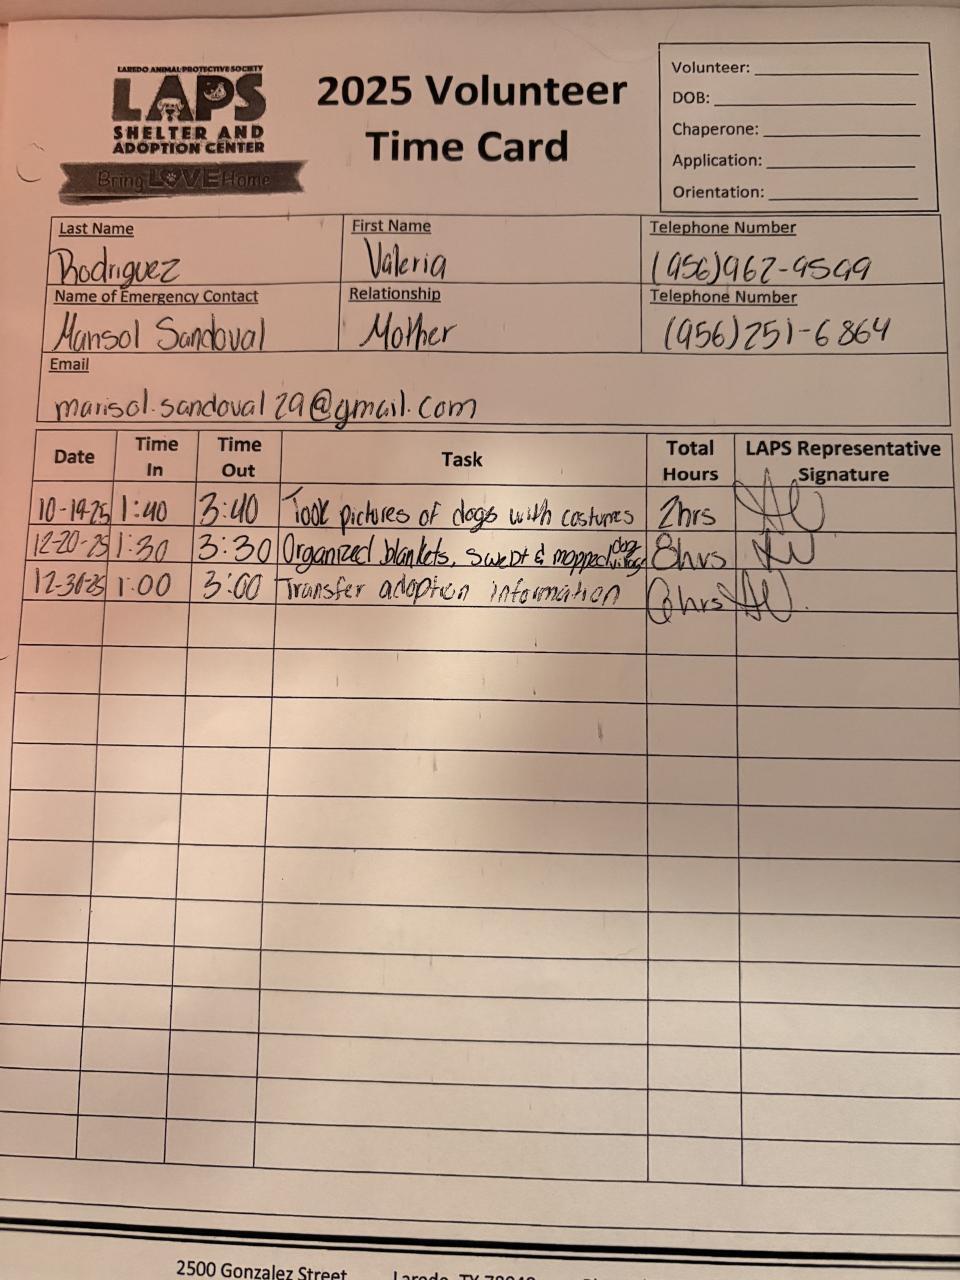 LAREDO ANIMAL PROTECTIVE SOCIETY
LAPS
SHELTER AND
ADOPTION CENTER
Bring LOVE Home
2025 Volunteer
Time Card
Volunteer:
DOB:
Chaperone:
Application:
Orientation:
Last Name First Name Telephone Number
Rodriguez Valeria (956)962-9599
Name of Emergency Contact Relationship Telephone Number
Marisol Sandoval Mother (956)251-6864
Email
marisol.sandoval29@gmail.com
Date Time In Time Out Task Total Hours LAPS Representative Signature
10-19-25 1:40 3:40 Took pictures of dogs with costumes 2hrs
12-20-25 1:30 3:30 Organized blankets, swept & mopped dog 8hrs
12-30-25 1:00 3:00 Transfer adoption information 6hrs
2500 Gonzalez Street Laredo, TX 78040